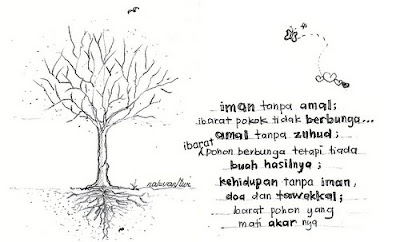 iman tanpa amal;
ibarat pokok tidak berbunga...
amal tanpa zuhud;
ibarat pohon berbunga tetapi tiada
buah hasilnya;
kehidupan tanpa iman,
doa dan tawakkal;
ibarat pohon yang
mati akar nya